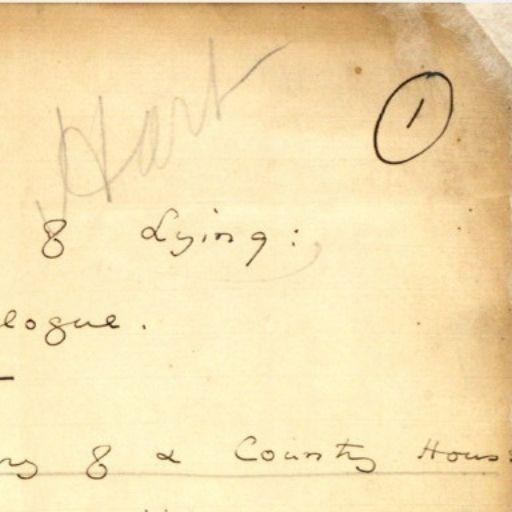 Hart
1
of Lying:
logue.
ry of a Country Hous